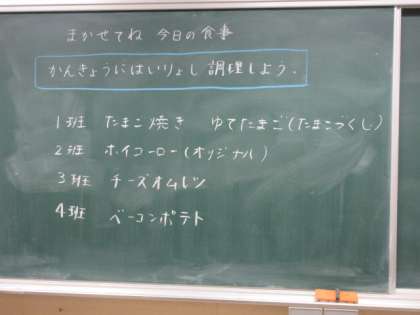 まかせてね 今日の食事
かんきょうにはいりょし 調理しよう。
1班 たまご焼き ゆでたまご(たまごづくし)
2班 ホイコーロー(オリジナル)
3班 チーズオムレツ
4班 ベーコンポテト